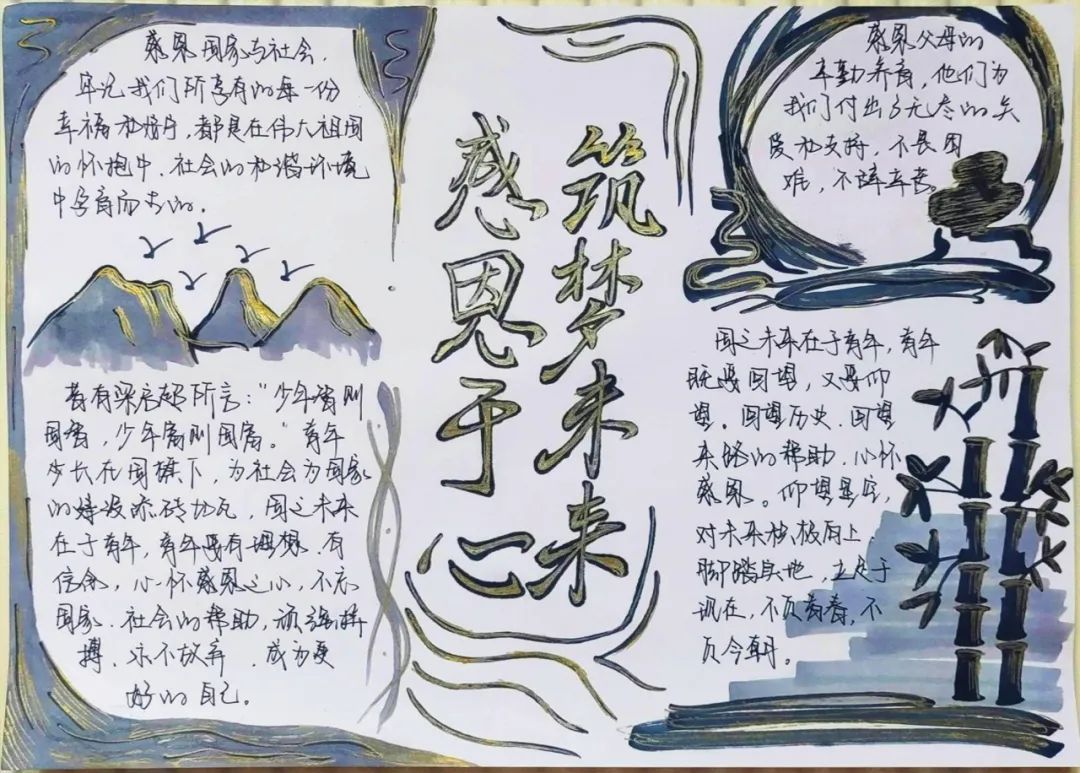 感恩于心
筑梦未来
感恩国家与社会，
牢记我们所享有的每一份
幸福和安宁，都是在伟大祖国
的怀抱中、社会的和谐环境
中孕育而去的。
昔有梁启超所言：“少年智则
国智，少年富则国富。”青年
生长在国旗下，为社会为国家
的建设添砖加瓦，国之未来
在于青年，青年要有理想、有
信念，心怀感恩之心，不忘
国家、社会的帮助，顽强拼
搏、永不放弃、成为更
好的自己。
感恩父母的
辛勤养育，他们为
我们付出了无尽的关
爱和支持，不畏困
难，不辞辛苦。
国之未来在于青年，青年
既要回望，又要仰
望。回望历史、回望
来路的帮助，心怀
感恩。仰望星空，
对未来积极向上，
脚踏实地，立足于
现在，不负青春，不
负今朝。